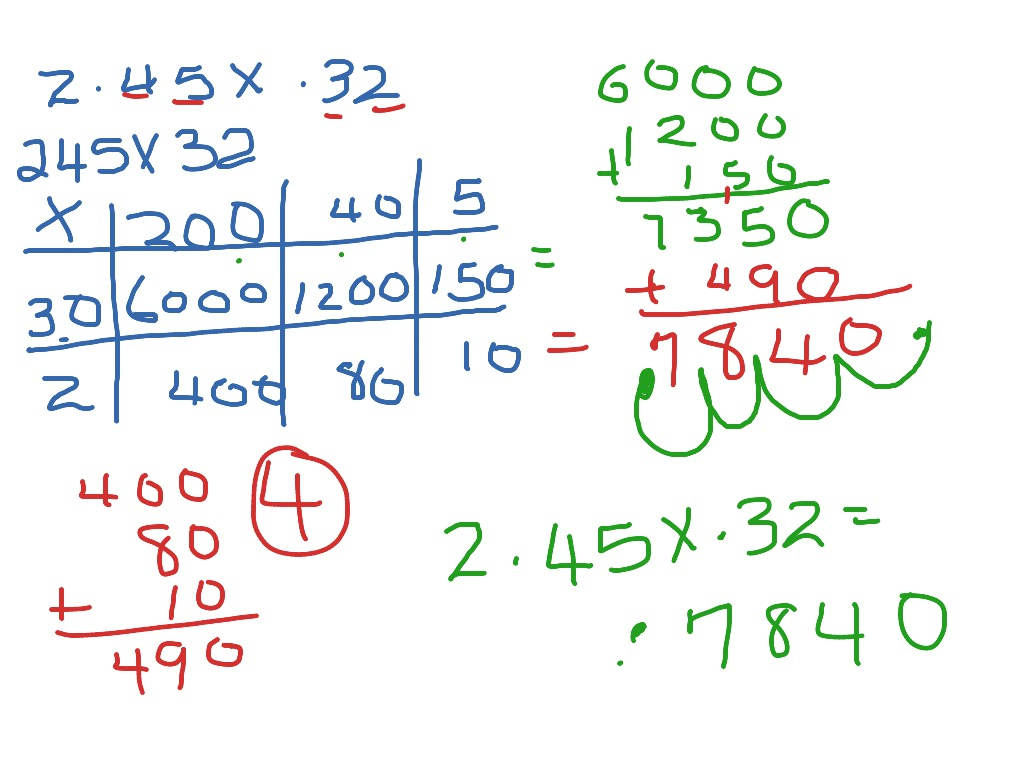 2.45 X .32
245 X 32
X 200 40 5
30 6000 1200 150 =
2 400 80 10
6000
1200
+ 150
7350
+ 490
= 7840.
400
80
+ 10
490
4
2.45 X .32 =
.7840